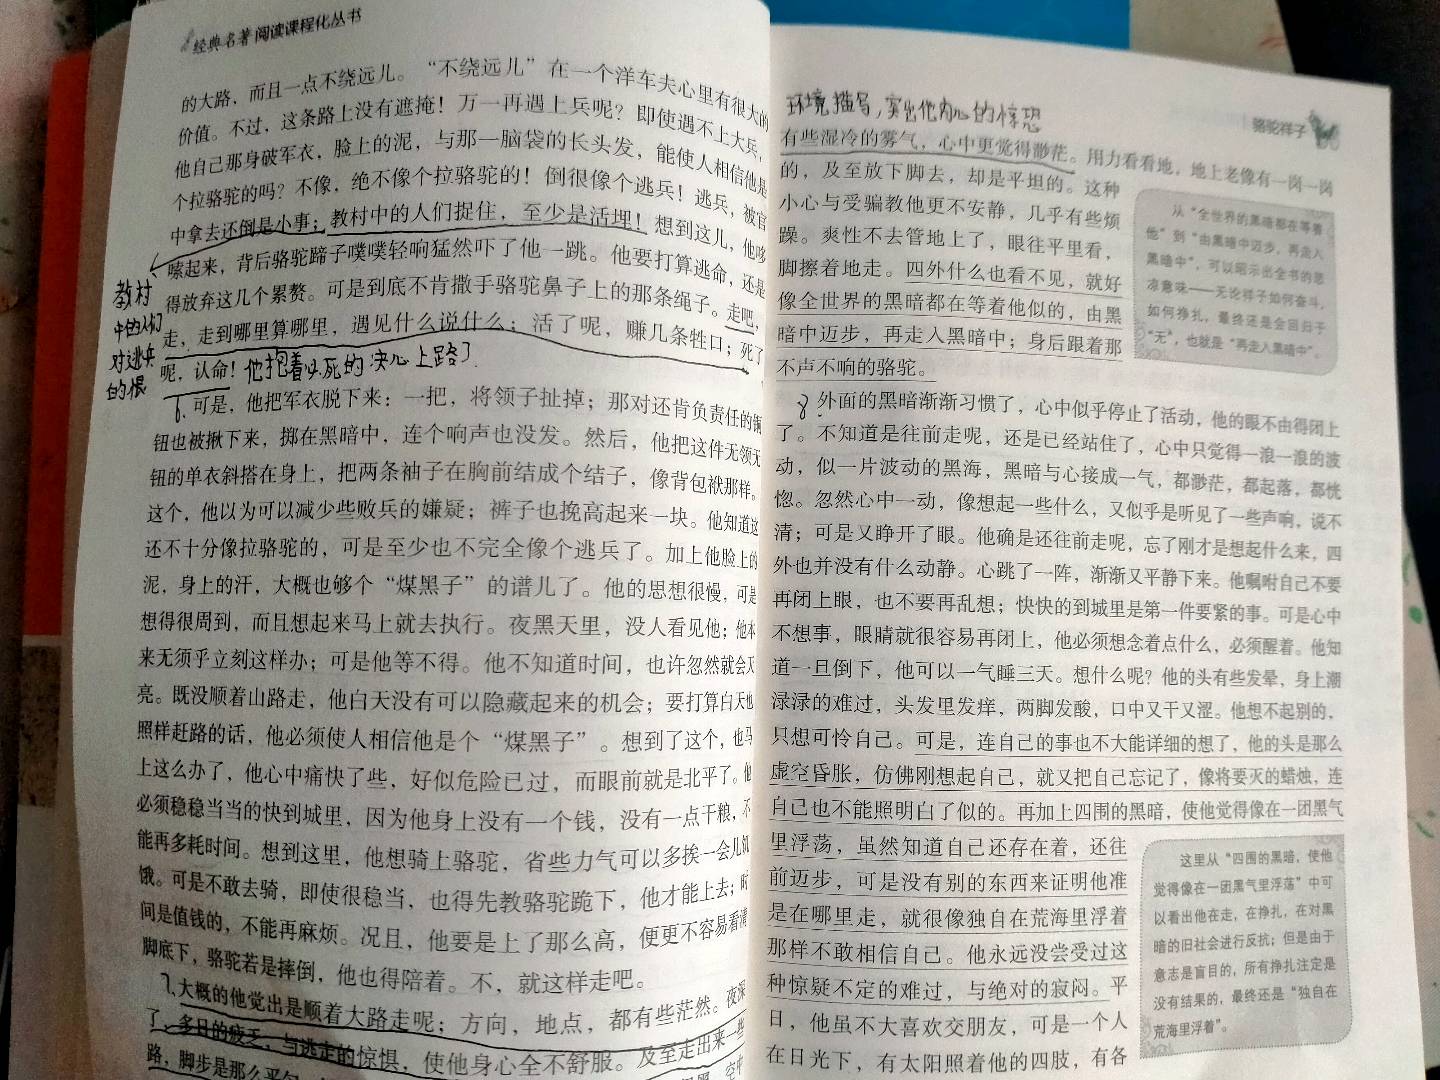 经典名著阅读课程化丛书
的大路，而且一点不绕远儿。“不绕远儿”在一个洋车夫心里有很大的
价值。不过，这条路上没有遮掩！万一再遇上兵呢？即使遇不上大兵，
他自己那身破军衣，脸上的泥，与那一脑袋的长头发，能使人相信他是
个拉骆驼的吗？不像，绝不像个拉骆驼的！倒很像个逃兵！逃兵，被官
中拿去还倒是小事；教村中的人们捉住，至少是活埋！想到这儿，他哆
嗦起来，背后骆驼蹄子噗噗轻响猛然吓了他一跳。他要打算逃命，还是
得放弃这几个累赘。可是到底不肯撒手骆驼鼻子上的那条绳子。走吧，
走，走到哪里算哪里，遇见什么说什么；活了呢，赚几条牲口；死了
呢，认命！他抱着必死的决心上路了
教村
中的人们
对逃兵
的恨
6、可是，他把军衣脱下来：一把，将领子扯掉；那对还肯负责任的铜
钮也被揪下来，掷在黑暗中，连个响声也没发。然后，他把这件无领无
钮的单衣斜搭在身上，把两条袖子在胸前结成个结子，像背包袱那样。
这个，他以为可以减少些败兵的嫌疑；裤子也挽高起来一块。他知道这
还不十分像拉骆驼的，可是至少也不完全像个逃兵了。加上他脸上的
泥，身上的汗，大概也够个“煤黑子”的谱儿了。他的思想很慢，可是
想得很周到，而且想起来马上就去执行。夜黑天里，没人看见他；他本
来无须乎立刻这样办；可是他等不得。他不知道时间，也许忽然就会天
亮。既没顺着山路走，他白天没有可以隐藏起来的机会；要打算白天也
照样赶路的话，他必须使人相信他是个“煤黑子”。想到了这个，也马
上这么办了，他心中痛快了些，好似危险已过，而眼前就是北平了。他
必须稳稳当当的快到城里，因为他身上没有一个钱，没有一点干粮，不
能再多耗时间。想到这里，他想骑上骆驼，省些力气可以多挨一会儿饥
饿。可是不敢去骑，即使很稳当，也得先教骆驼跪下，他才能上去；时
间是值钱的，不能再麻烦。况且，他要是上了那么高，便更不容易看清
脚底下，骆驼若是摔倒，他也得陪着。不，就这样走吧。
7、大概的他觉出是顺着大路走呢；方向，地点，都有些茫然。夜深
了，多日的疲乏，与逃走的惊惧，使他身心全不舒服。及至走出来一些
路，脚步是那么平匀
环境描写，突出他内心的惊恐
骆驼祥子
有些湿冷的雾气，心中更觉得渺茫。用力看看地，地上老像有一岗一岗
的，及至放下脚去，却是平坦的。这种
小心与受骗教他更不安静，几乎有些烦
躁。爽性不去管地上了，眼往平里看，
脚擦着地走。四外什么也看不见，就好
像全世界的黑暗都在等着他似的，由黑
暗中迈步，再走入黑暗中；身后跟着那
不声不响的骆驼。
从“全世界的黑暗都在等着
他”到“由黑暗中迈步，再走入
黑暗中”，可以昭示出全书的悲
凉意味——无论祥子如何奋斗，
如何挣扎，最终还是会回归于
“无”，也就是“再走入黑暗中”。
8、外面的黑暗渐渐习惯了，心中似乎停止了活动，他的眼不由得闭上
了。不知道是往前走呢，还是已经站住了，心中只觉得一浪一浪的波
动，似一片波动的黑海，黑暗与心接成一气，都渺茫，都起落，都恍
惚。忽然心中一动，像想起一些什么，又似乎是听见了一些声响，说不
清；可是又睁开了眼。他确是还往前走呢，忘了刚才是想起什么来，四
外也并没有什么动静。心跳了一阵，渐渐又平静下来。他嘱咐自己不要
再闭上眼，也不要再乱想；快快的到城里是第一件要紧的事。可是心中
不想事，眼睛就很容易再闭上，他必须想念着点什么，必须醒着。他知
道一旦倒下，他可以一气睡三天。想什么呢？他的头有些发晕，身上潮
渌渌的难过，头发里发痒，两脚发酸，口中又干又涩。他想不起别的，
只想可怜自己。可是，连自己的事也不大能详细的想了，他的头是那么
虚空昏胀，仿佛刚想起自己，就又把自己忘记了，像将要灭的蜡烛，连
自己也不能照明白了似的。再加上四围的黑暗，使他觉得像在一团黑气
里浮荡，虽然知道自己还存在着，还往
前迈步，可是没有别的东西来证明他准
是在哪里走，就很像独自在荒海里浮着
那样不敢相信自己。他永远没尝受过这
种惊疑不定的难过，与绝对的寂闷。平
日，他虽不大喜欢交朋友，可是一个人
在日光下，有太阳照着他的四肢，有各
这里从“四围的黑暗，使他
觉得像在一团黑气里浮荡”中可
以看出他在走，在挣扎，在对黑
暗的旧社会进行反抗；但是由于
意志是盲目的，所有挣扎注定是
没有结果的，最终还是“独自在
荒海里浮着”。